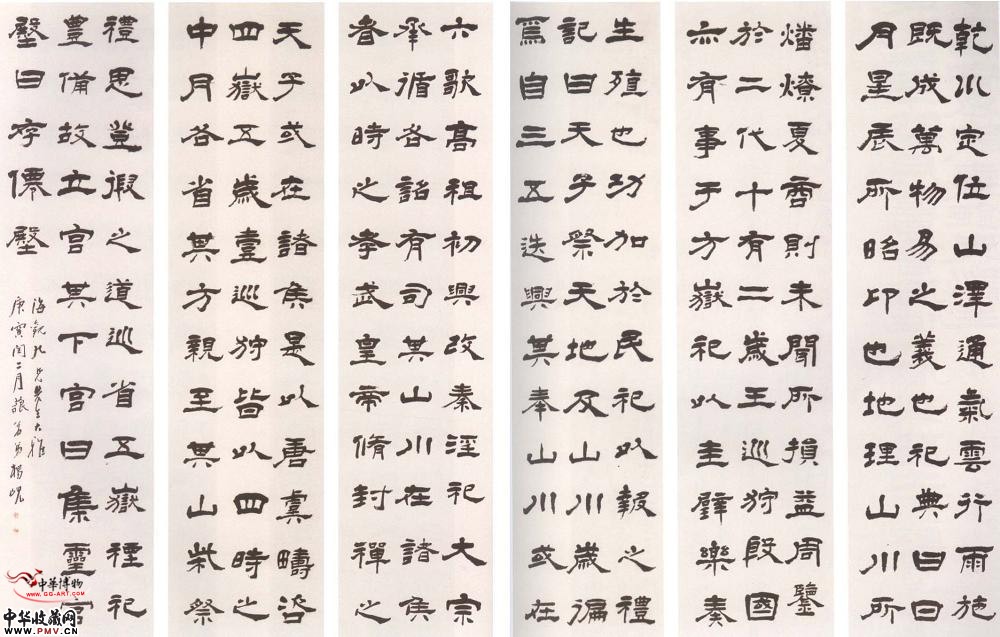 乾川定位山澤通氣雲行雨施
既成萬物易之義也祀典曰曰
月星辰所昭卬也地理山川所
燔燎夏商則未聞所損益周鑒
於二代十有二歲王巡狩殷國
亦有事于方嶽祀以圭璧樂奏
生殖也功加於民祀以報之禮
記曰天子祭天地及山川歲徧
焉自三五迭興其奉山川或在
六歌高祖初興改秦淫祀大宗
承循各詔有司其山川在諸侯
者以時之孝武皇帝脩封禪之
天子或在諸侯是以唐虞疇咨
四嶽五歲壹巡狩皆以四時之
中月各省其方親至其山柴祭
禮思登徦之道巡省五嶽禋祀
豊備故立宮其下宮曰集靈宮
壂曰存僊壂
海觀九兄先生大雅
庚寅閏二月藐翁弟楊峴
中華博物
www.GG-ART.com
中华收藏网
www.PMV.CN